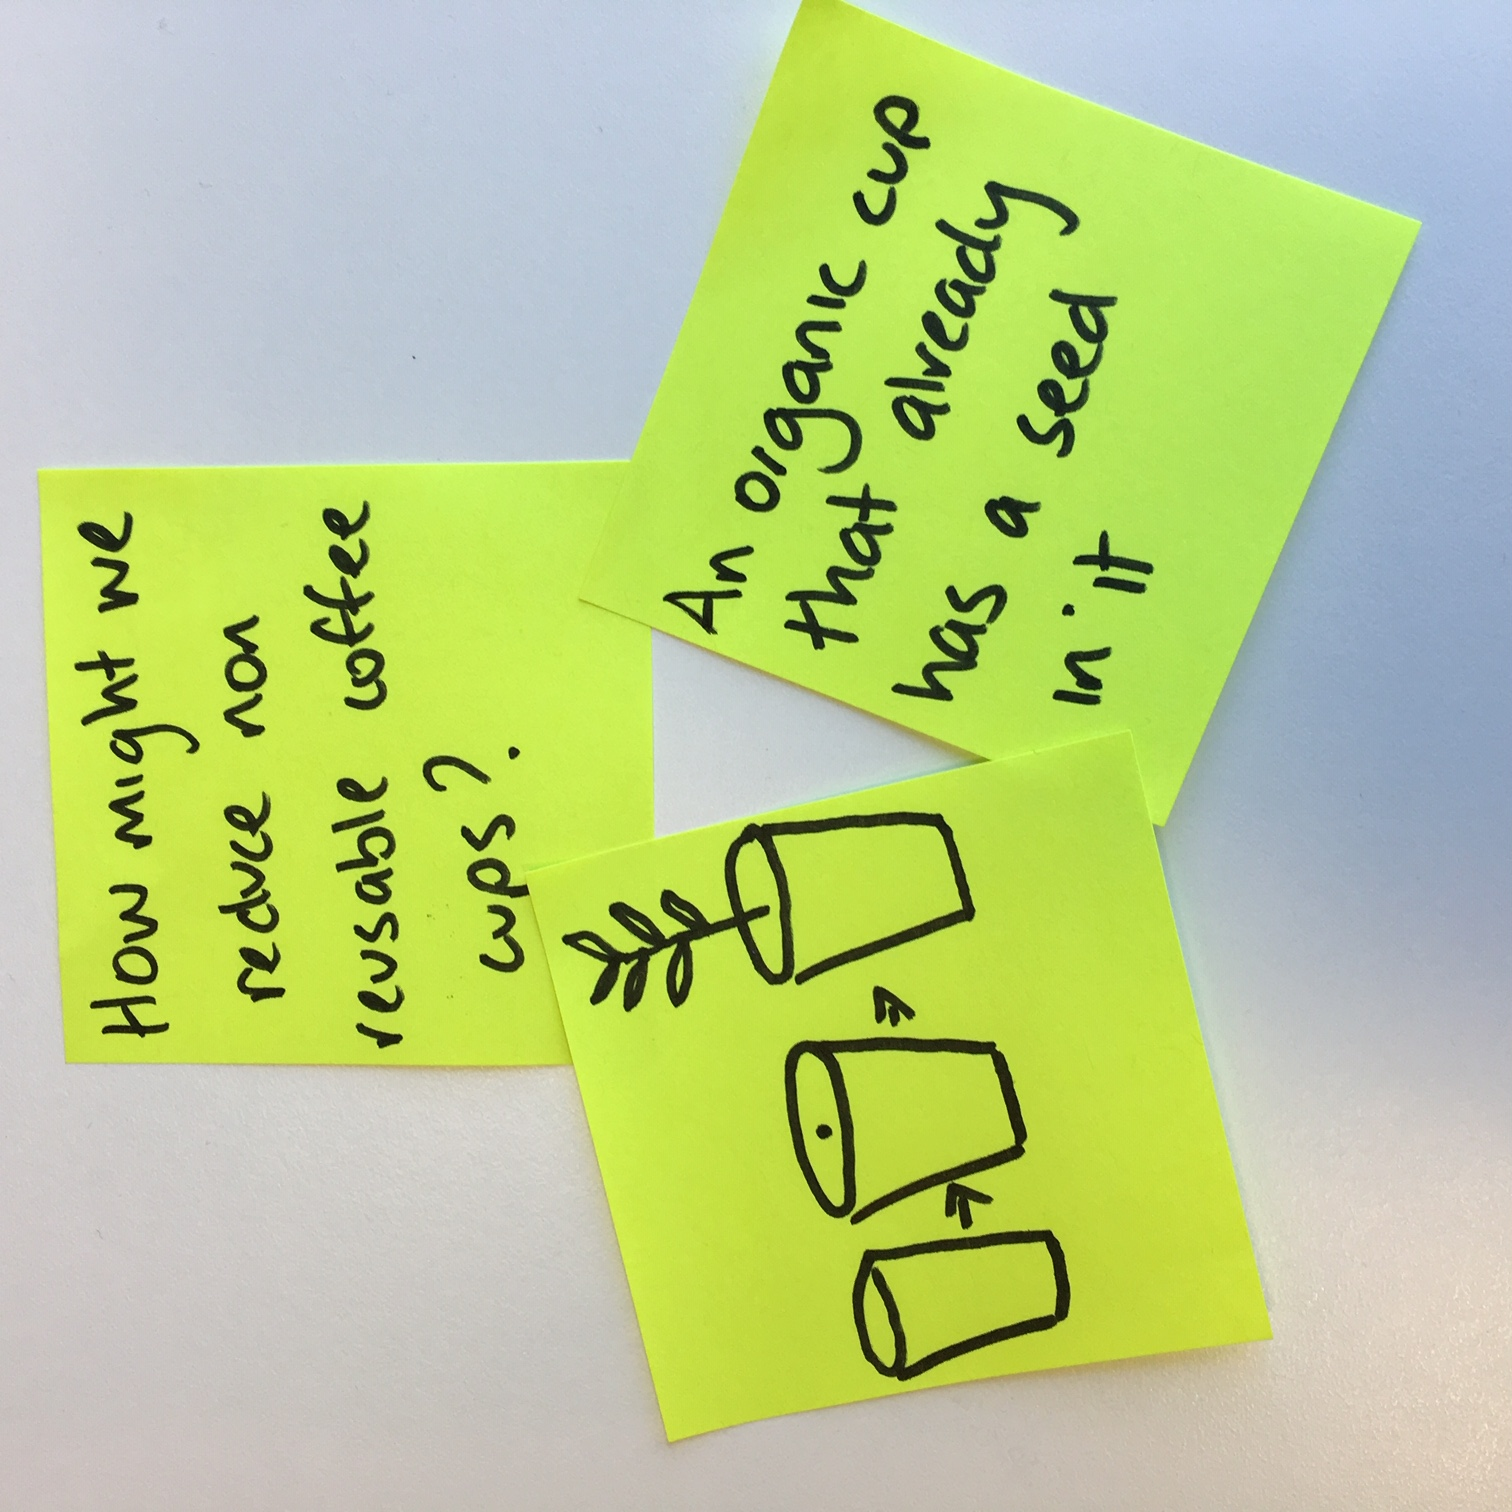 How might we
reduce non
reusable coffee
cups?
An organic cup
that already
has a seed
in it